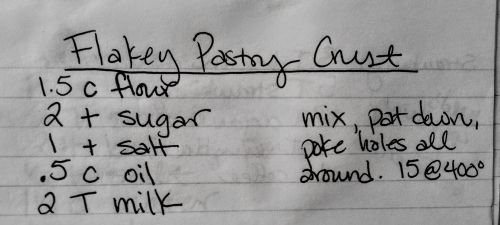 Flakey Pastry Crust
1.5 c flour
2 t sugar
1 t salt
.5 c oil
2 T milk
mix, pat down,
poke holes all
around. 15@400°